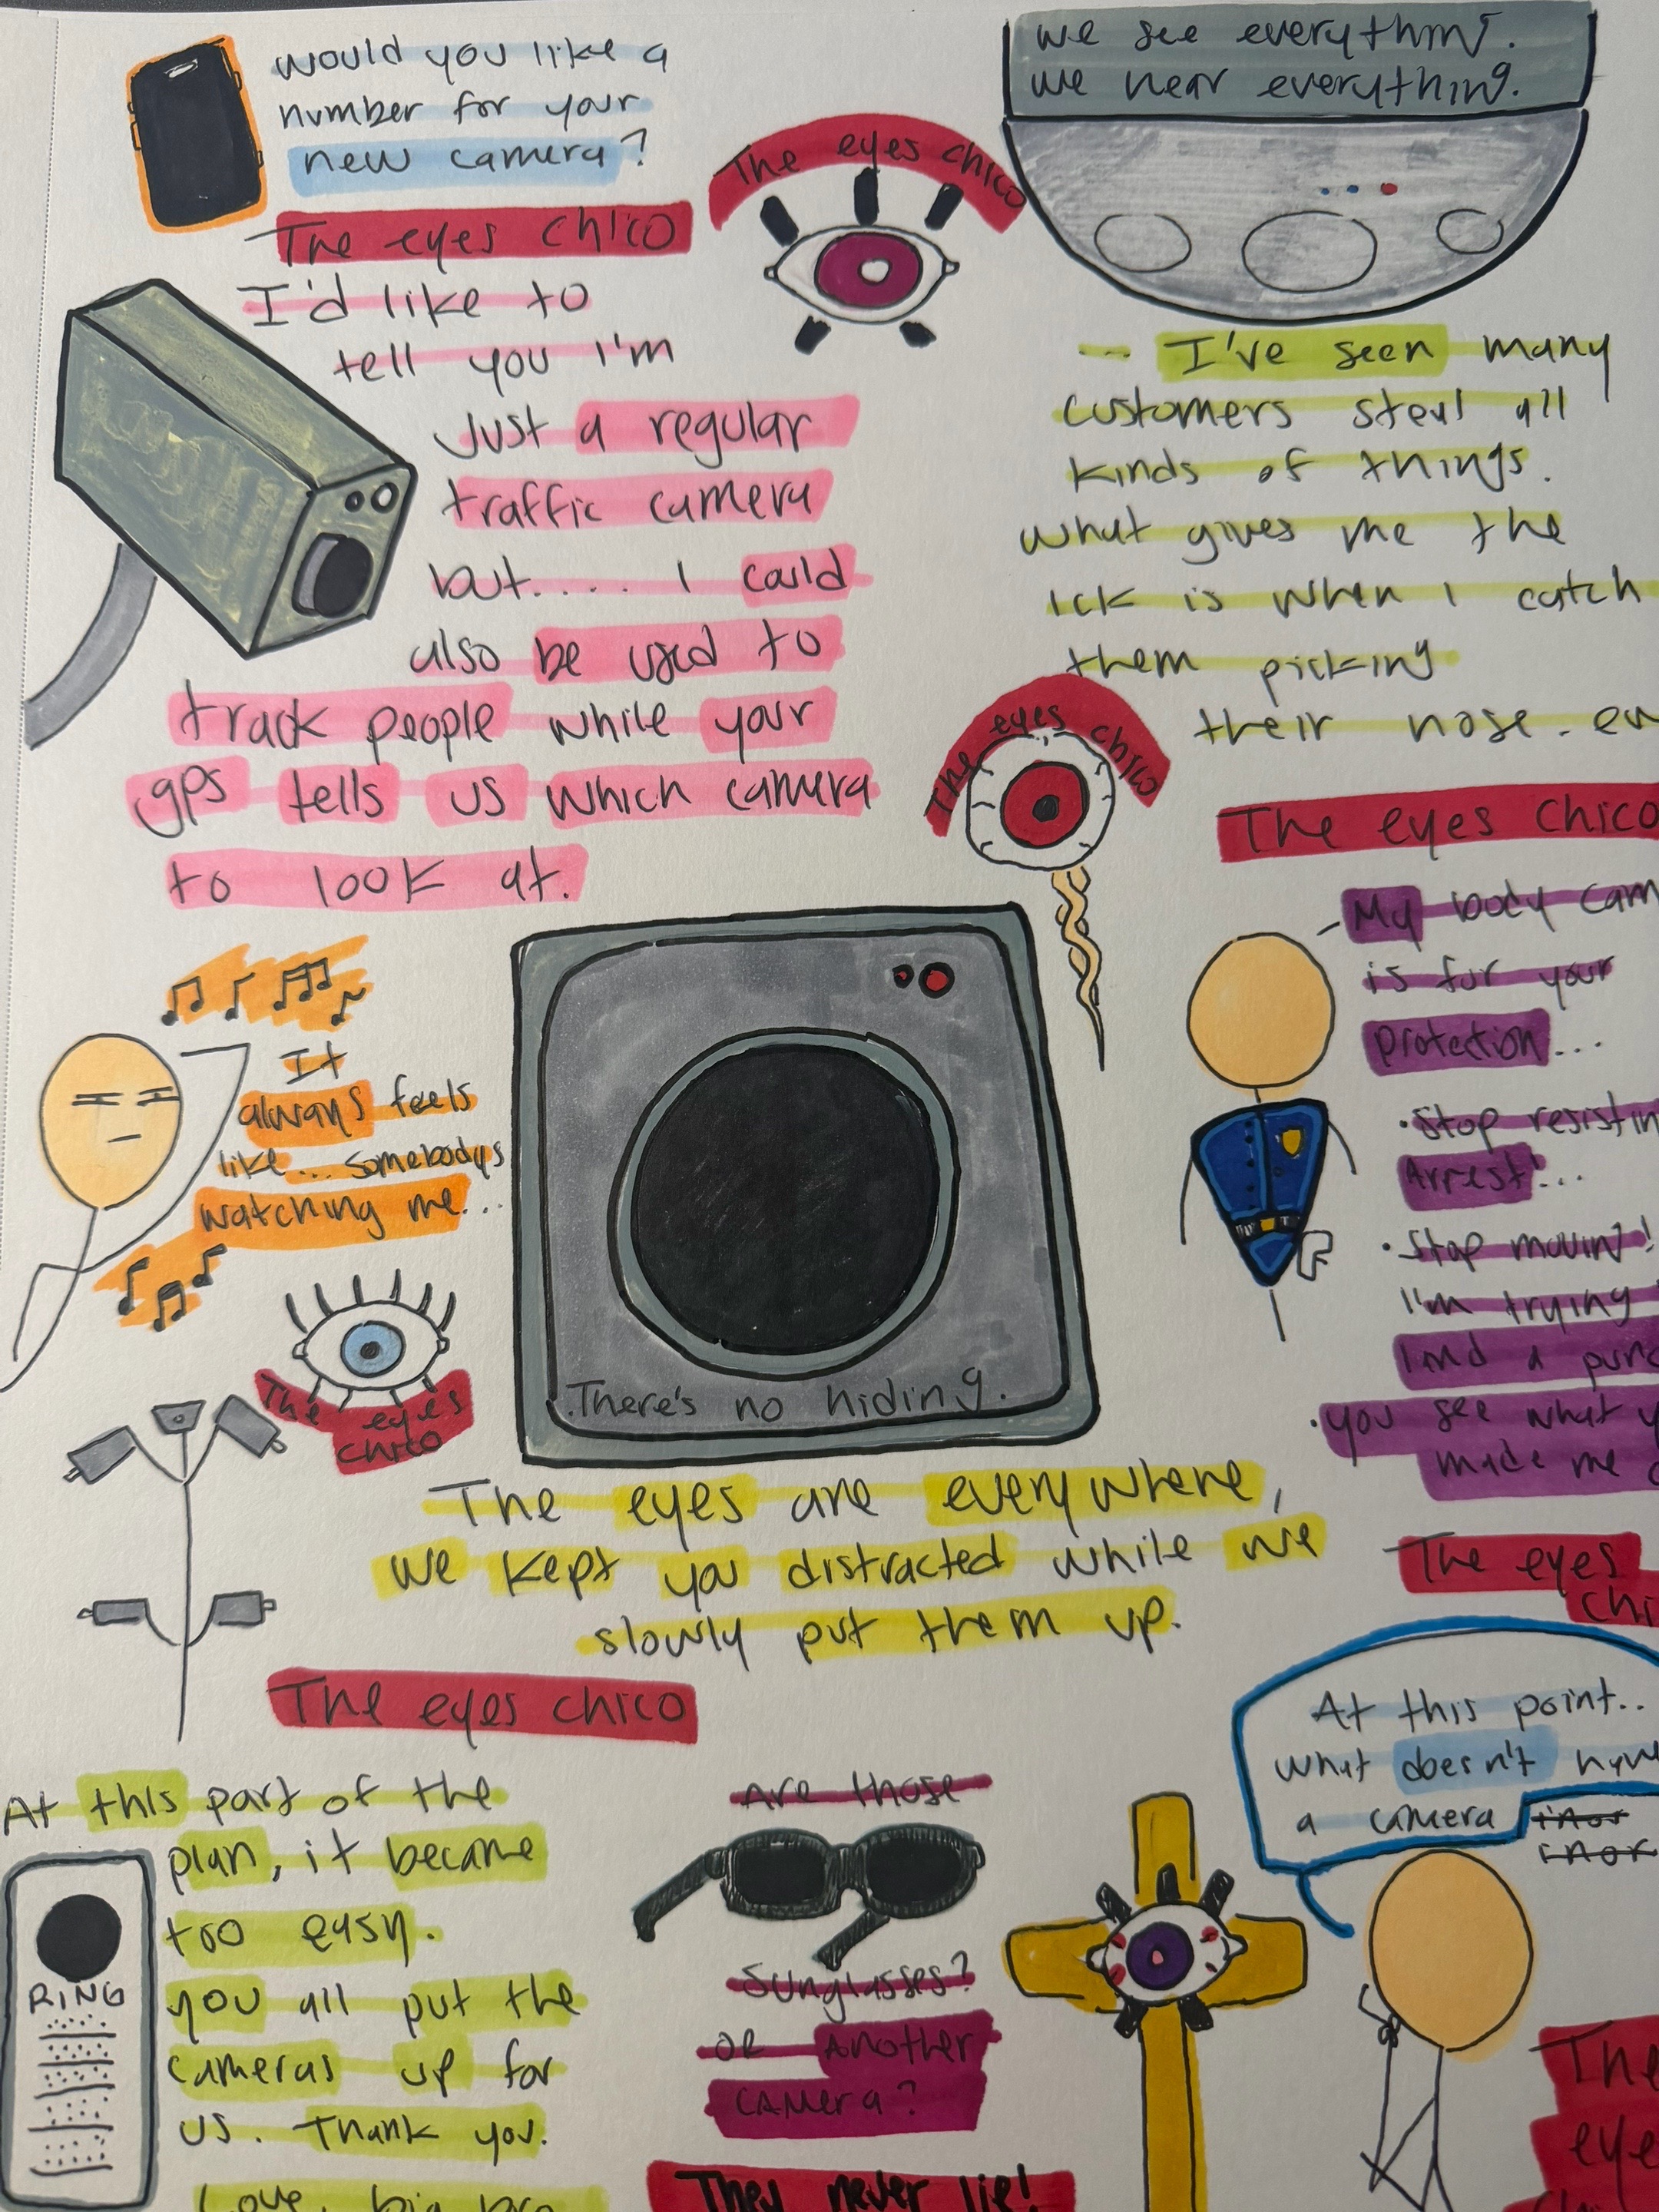 would you like a
number for your
new camera?
The eyes chico
I'd like to
tell you i'm
Just a regular
traffic camera
but..... I could
also be used to
track people while your
gps tells us which camera
to look at.
The eyes chico
we see everything.
we hear everything.
I've seen many
customers steal all
kinds of things.
what gives me the
ick is when I catch
them picking
their nose. ew
The eyes chico
The eyes chico
My body cam
is for your
protection...
•Stop resistin
Arrest!...
•Stop movin'!
i'm trying
land a punc
•you see what y
made me
The eyes
chi
It
always feels
like... somebodys
watching me...
The eyes
chico
There's no hiding.
The eyes are everywhere,
we kept you distracted while we
slowly put them up.
The eyes chico
At this part of the
plan, it became
too easy.
you all put the
cameras up for
us. Thank you.
Love, big bro
RING
Are those
Sunglasses?
or Another
camera?
They never lie!
At this point..
what doesn't have
a camera
The
eye